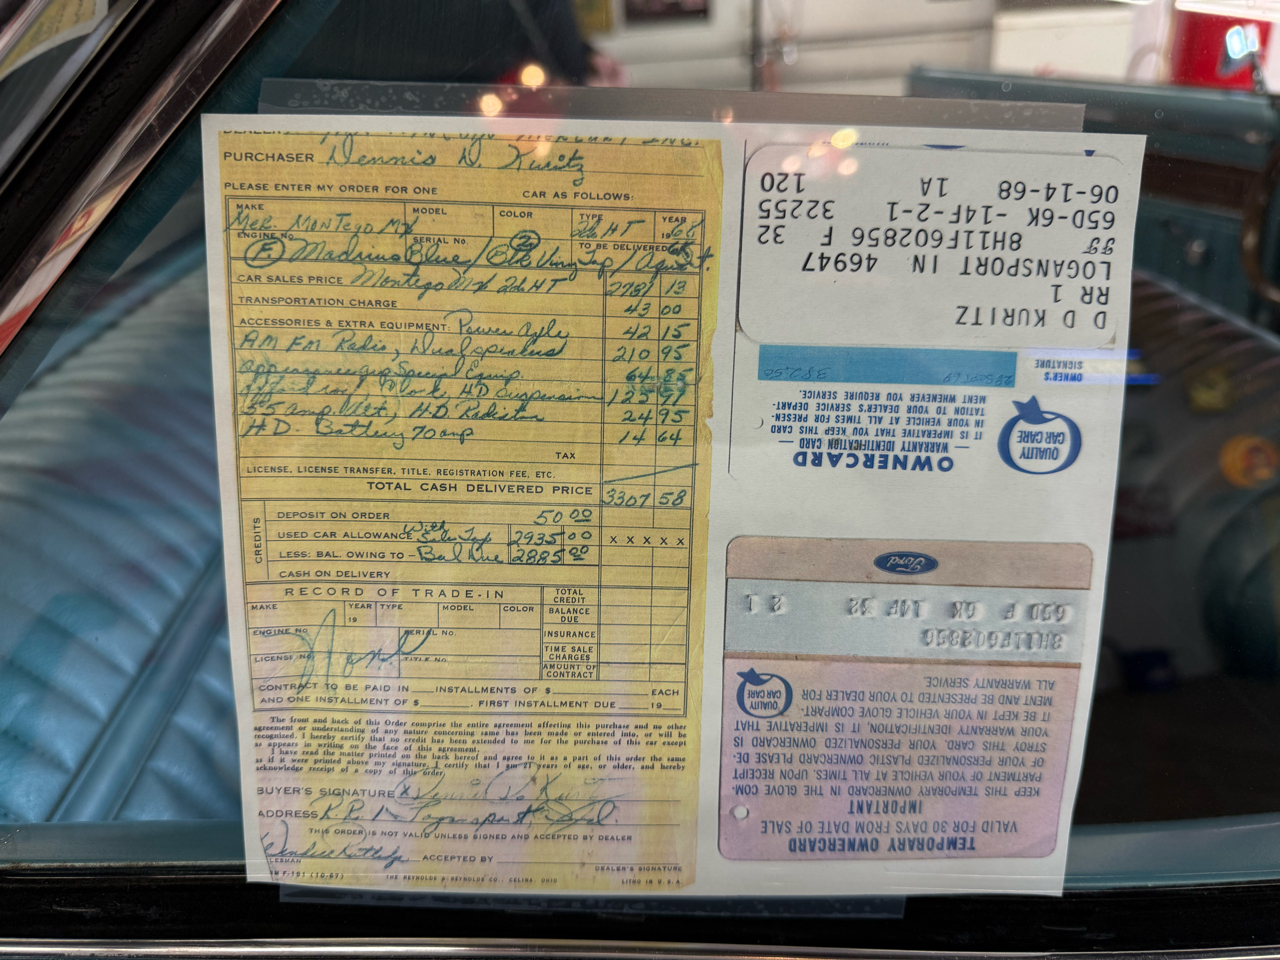 PURCHASER Dennis D. Kuritz
PLEASE ENTER MY ORDER FOR ONE CAR AS FOLLOWS:
MAKE MODEL COLOR TYPE YEAR
Mer Montego MX 2d HT 1968
ENGINE NO. SERIAL NO. TO BE DELIVERED
(F) Madrius Blue / (2) Blk Viny Top / August
CAR SALES PRICE Montego MX 2d HT 2781 13
TRANSPORTATION CHARGE 43 00
ACCESSORIES & EXTRA EQUIPMENT: Power 42 15
AM FM Radio, Dual speakers 210 95
Appearance grp Special Equip. 64 85
Clock, HD Suspension 125 91
55 amp Alt, HD Radiator 24 95
H.D. Battery 70 amp 14 64
TAX
LICENSE, LICENSE TRANSFER, TITLE, REGISTRATION FEE, ETC.
TOTAL CASH DELIVERED PRICE 3307 58
CREDITS
DEPOSIT ON ORDER 50 00
USED CAR ALLOWANCE With Sales Tax 2935 00 X X X X X
LESS: BAL. OWING TO - Bal Due 2885 00
CASH ON DELIVERY
RECORD OF TRADE-IN TOTAL CREDIT
MAKE YEAR 19 TYPE MODEL COLOR BALANCE DUE
ENGINE NO. SERIAL NO. INSURANCE
None
LICENSE NO. TITLE NO. TIME SALE CHARGES
AMOUNT OF CONTRACT
CONTRACT TO BE PAID IN INSTALLMENTS OF $ EACH
AND ONE INSTALLMENT OF $ , FIRST INSTALLMENT DUE 19
The front and back of this Order comprise the entire agreement affecting this purchase and no other
agreement or understanding of any nature concerning same has been made or entered into, or will be
recognized. I hereby certify that no credit has been extended to me for the purchase of this car except
as appears in writing on the face of this agreement.
I have read the matter printed on the back hereof and agree to it as a part of this order the same
as if it were printed above my signature. I certify that I am 21 years of age, or older, and hereby
acknowledge receipt of a copy of this order.
BUYER'S SIGNATURE X Dennis D. Kuritz
ADDRESS R.R. 1 Logansport Ind.
THIS ORDER IS NOT VALID UNLESS SIGNED AND ACCEPTED BY DEALER
ACCEPTED BY
LESMAN DEALER'S SIGNATURE
F-101 (10-67) THE REYNOLDS & REYNOLDS CO., CELINA, OHIO LITHO IN U.S.A.
D D KURITZ
RR 1
LOGANSPORT IN 46947
8H11F602856 F 32
65D-6K -14F-2-1 32255
06-14-68 1A 120
OWNER'S SIGNATURE
QUALITY CAR CARE
OWNERCARD
— WARRANTY IDENTIFICATION CARD —
IT IS IMPERATIVE THAT YOU KEEP THIS CARD
IN YOUR VEHICLE AT ALL TIMES FOR PRESEN-
TATION TO YOUR DEALER'S SERVICE DEPART-
MENT WHENEVER YOU REQUIRE SERVICE.
TEMPORARY OWNERCARD
VALID FOR 30 DAYS FROM DATE OF SALE
IMPORTANT
KEEP THIS TEMPORARY OWNERCARD IN THE GLOVE COM-
PARTMENT OF YOUR VEHICLE AT ALL TIMES. UPON RECEIPT
OF YOUR PERSONALIZED PLASTIC OWNERCARD PLEASE DE-
STROY THIS CARD. YOUR PERSONALIZED OWNERCARD IS
YOUR WARRANTY IDENTIFICATION. IT IS IMPERATIVE THAT
IT BE KEPT IN YOUR VEHICLE GLOVE COMPART-
MENT AND BE PRESENTED TO YOUR DEALER FOR
ALL WARRANTY SERVICE.
QUALITY CAR CARE
8H11F602856
65D F 6K 14F 32 2 1
Ford